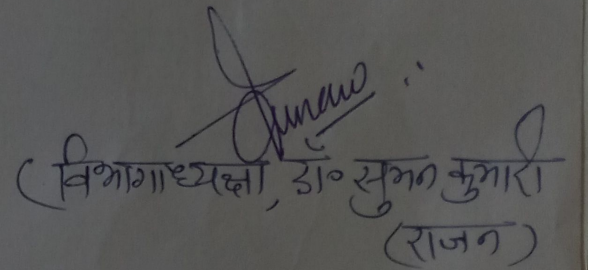 (विभागाध्यक्षा, डॉ० सुमन कुमारी
(राजन)